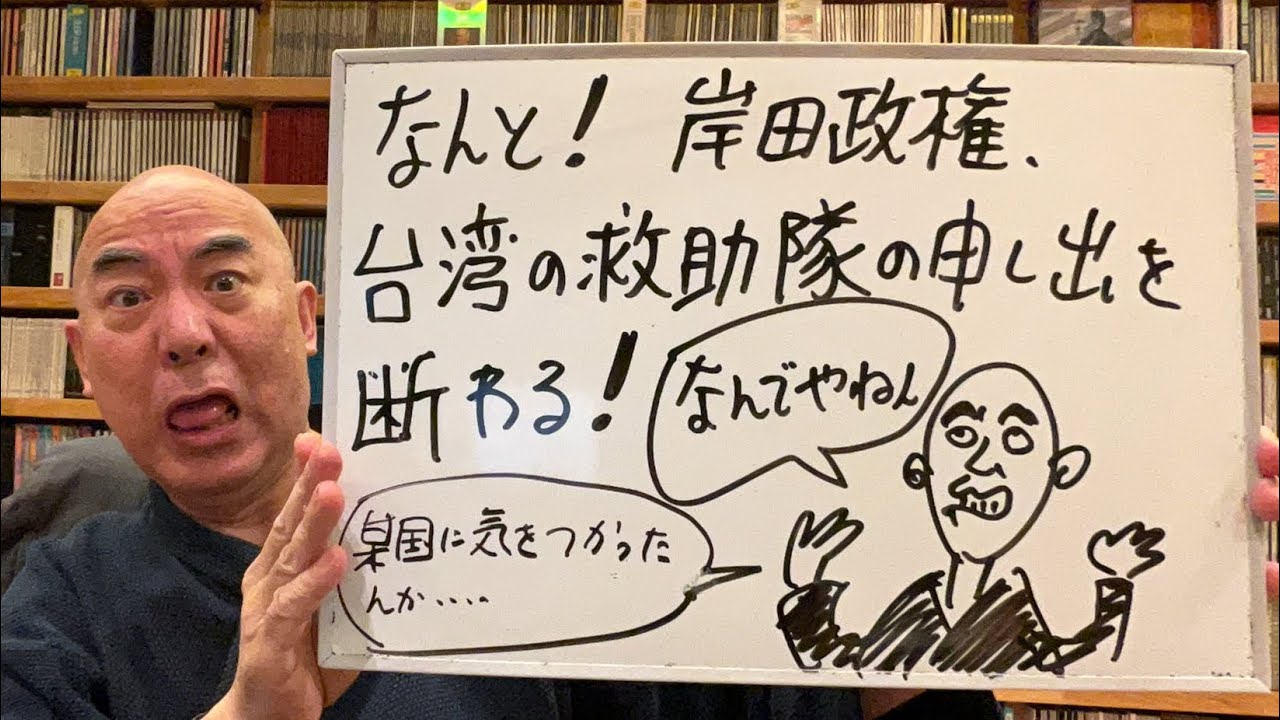 なんと！ 岸田政権、
台湾の救助隊の申し出を
断わる！
なんでやねん
某国に気をつかった
んか....